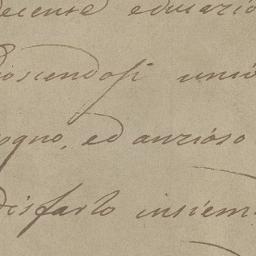 decente educazio
oscendosi unio
ogno, ed anzioso
disfarlo insiem